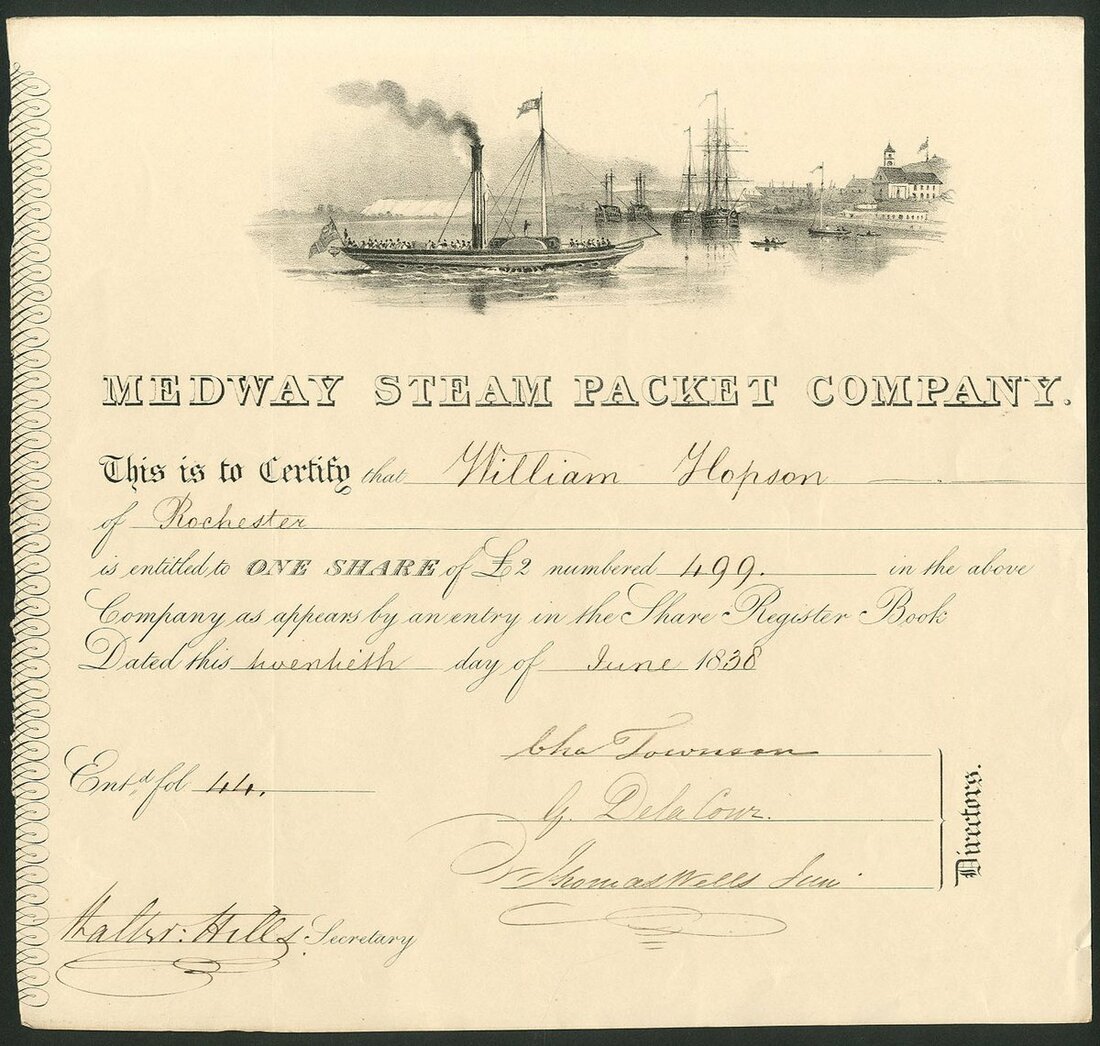 MEDWAY STEAM PACKET COMPANY.
This is to Certify that William Hopson
of Rochester
is entitled to ONE SHARE of £2 numbered 499. in the above
Company as appears by an entry in the Share Register Book
Dated this twentieth day of June 1838
Cha Townson
Ent.d fol 44.
G. Dela Cour.
Thomas Wells Jun
Directors.
Walter: Hills. Secretary